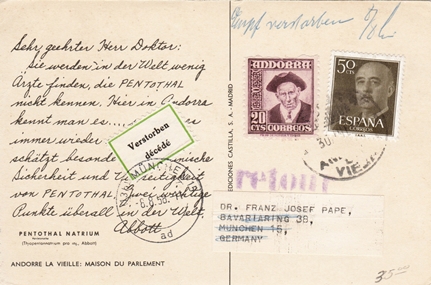 Sehr geehrter Herr Doktor:
Sie werden in der Welt wenig
Ärzte finden, die PENTOTHAL
nicht kennen. Hier in Andorra
kennt man es....
immer wieder
schätzt besonde
Sicherheit und
von PENTOTHAL, zwei wichtige
Punkte überall in der Welt.
Abbott
PENTOTHAL NATRIUM
(Thiopentonnatrium pro inj., Abbott)
ANDORRE LA VIEILLE: MAISON DU PARLEMENT
Verstorben
décédé
MÜNCHEN
ad
EDICIONES CASTILLA, S. A. - MADRID
Empf verstorben
ANDORRA
20
CTS
CORREOS
50
CTS
ESPAÑA
CORREOS
30
VIEJA
DR. FRANZ JOSEF PAPE,
BAVARIARING 38,
MUNCHEN 15,
GERMANY